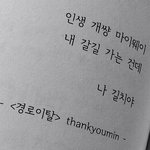 인생 개쌍 마이웨이
내 갈길 가는 건데
나 길치야
- <경로이탈> thankyoumin -